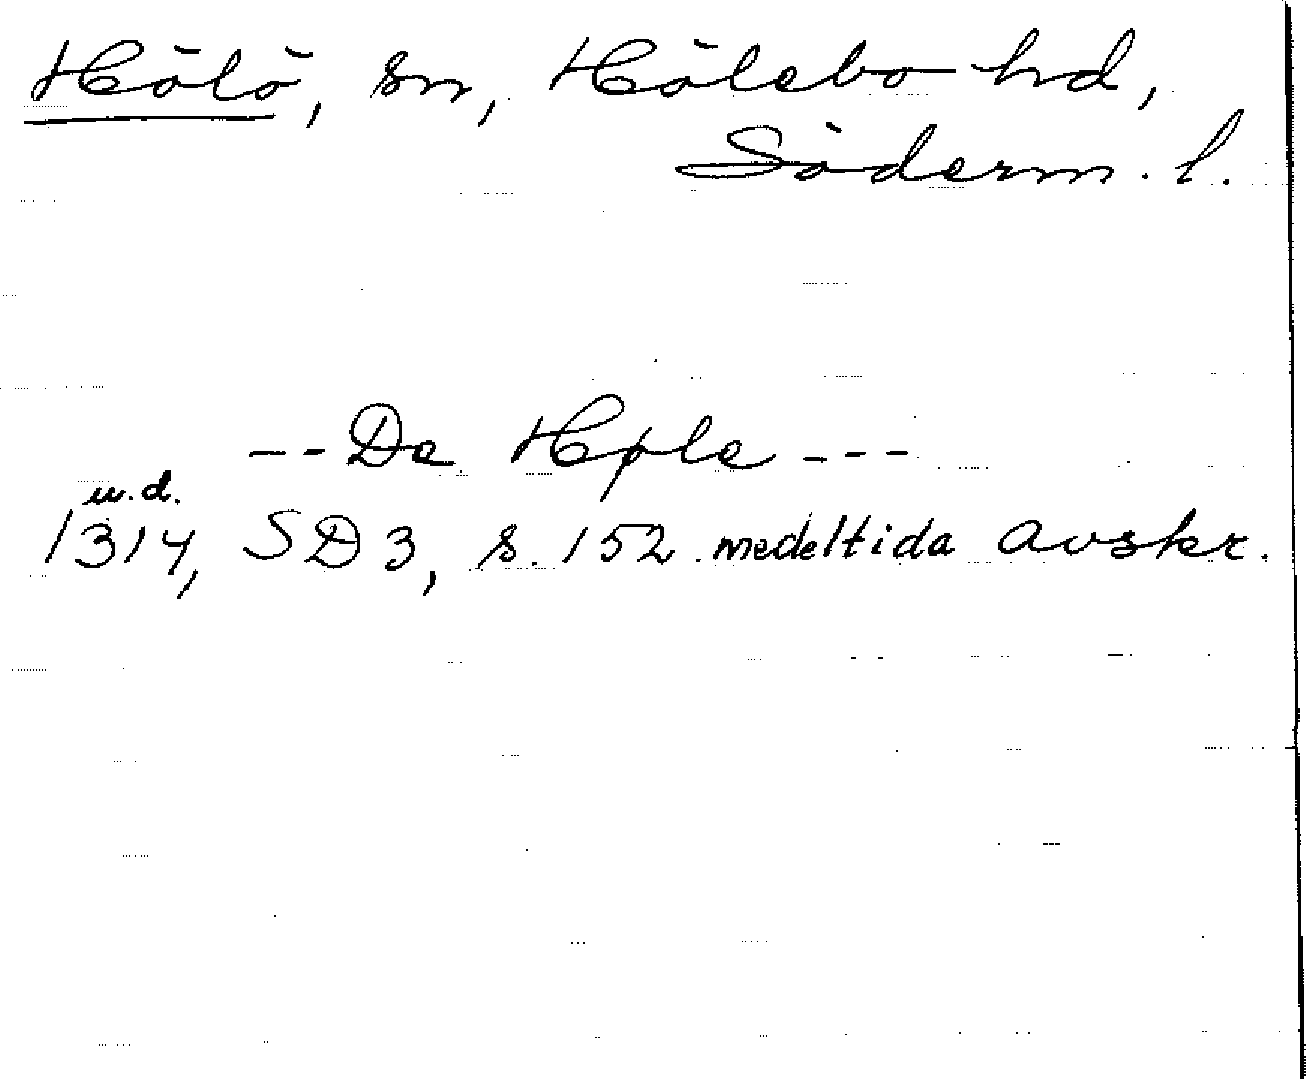 Hölö, sn, Hölebo hd,
Söderm. l.
-- De Høle ---
u.d.
1314, SD 3, s. 152. medeltida avskr.